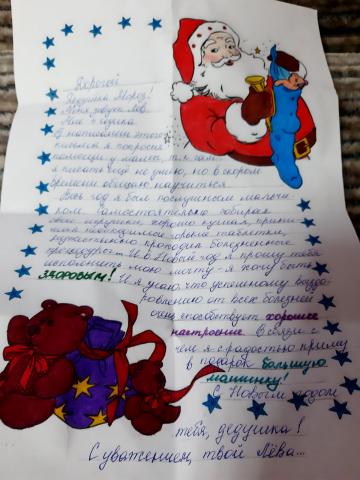 Дорогой
Дедушка Мороз!
Меня зовут Лев.
Мне 3 годика.
В написании этого
письма я попросил
помощи у мамы, т.к. сам
я писать ещё не умею, но в скором
времени обещаю научиться.
Весь год я был послушным мальчи-
ком. Самостоятельно собирал
свои игрушки, хорошо кушал, прини-
мал необходимые горькие таблетки,
мужественно проходил болезненные
процедуры. И в Новый год я прошу тебя
исполнить мою мечту - я хочу быть
здоровым! И я знаю, что успешному выздо-
ровлению от всех болезней
очень способствует хорошее
настроение. В связи с
чем я с радостью приму
в подарок большую
машинку!
С Новым годом
тебя, дедушка!
С уважением, твой Лёва...